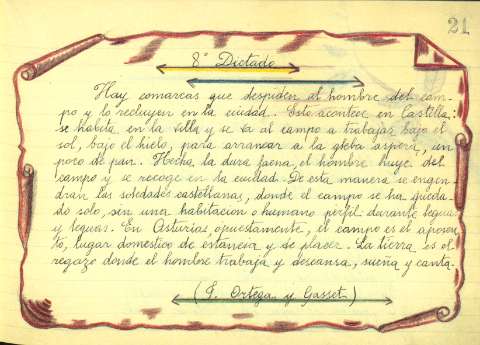 21
8º Dictado
Hay comarcas que despiden al hombre del cam-
po y lo recluyen en la ciudad. Esto acontece en Castilla:
se habita en la villa y se va al campo a trabajar bajo el
sol, bajo el hielo, para arrancar a la gleba áspera, un
poco de pan. Hecha la dura faena el hombre huye del
campo y se recoge en la ciudad. De esta manera se engen-
dran las soledades castellanas, donde el campo se ha queda-
do solo, sin una habitacion o humano perfil durante leguas
y leguas. En Asturias, opuestamente, el campo es el aposen-
to, lugar domestico de estancia y de placer. La tierra es el
regazo donde el hombre trabaja y descansa, sueña y canta.
(J. Ortega y Gasset)